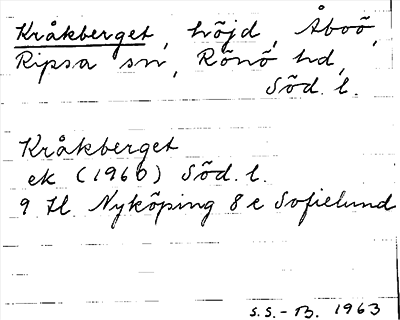 Kråkberget, höjd, Åboö,
Ripsa sn, Rönö hd,
Söd. l.
Kråkberget
ek (1960) Söd. l.
9 H Nyköping 8 e Sofielund
S.S.-B. 1963